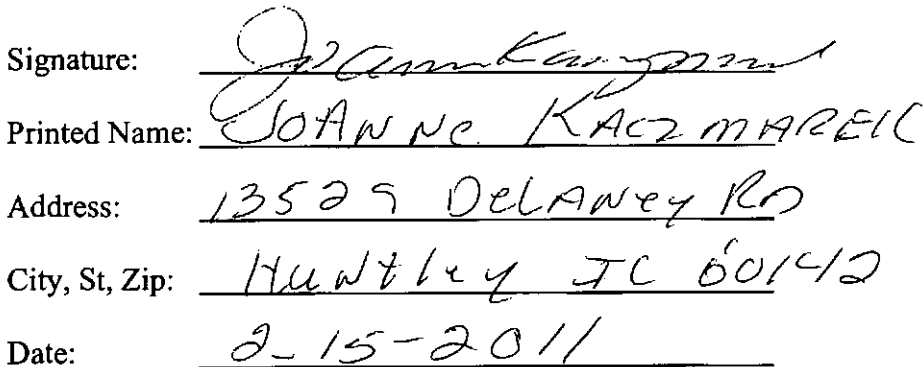 Signature: JoAnn Kaczmarek
Printed Name: JOANNe KACZMAREK
Address: 13529 DeLANey RD
City, St, Zip: HuNtley IL 60142
Date: 2-15-2011